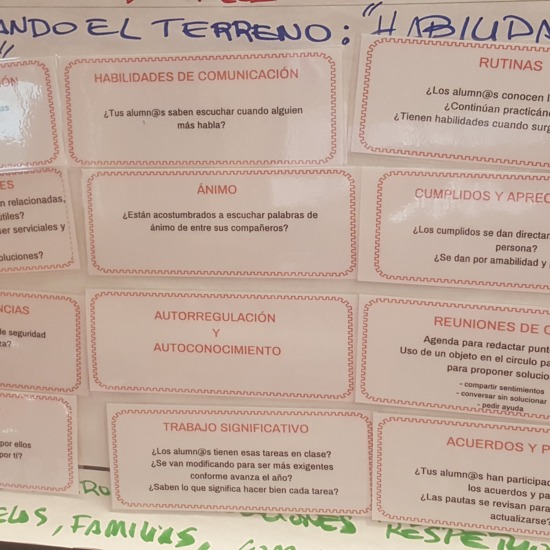 EL TERRENO: "HABILIDA
HABILIDADES DE COMUNICACIÓN
¿Tus alumn@s saben escuchar cuando alguien
más habla?
RUTINAS
¿Los alumn@s conocen
¿Continúan
¿Tienen habilidades cuando
n relacionadas,
útiles?
er serviciales y
oluciones?
ÁNIMO
¿Están acostumbrados a escuchar palabras de
ánimo de entre sus compañeros?
CUMPLIDOS Y
¿Los cumplidos se dan
persona?
¿Se dan por amabilidad y
NCIAS
de seguridad
za?
AUTORREGULACIÓN
Y
AUTOCONOCIMIENTO
REUNIONES DE C
Agenda para redactar
Uso de un objeto en el circulo
para proponer
- compartir sentimientos
- conversar sin solucionar
- pedir ayuda
por ellos
por ti?
TRABAJO SIGNIFICATIVO
¿Los alumn@s tienen esas tareas en clase?
¿Se van modificando para ser más exigentes
conforme avanza el año?
¿Saben lo que significa hacer bien cada tarea?
ACUERDOS Y P
¿Tus alumn@s han
los acuerdos y
¿Las pautas se revisan para
actualizarse?
FAMILIAS,